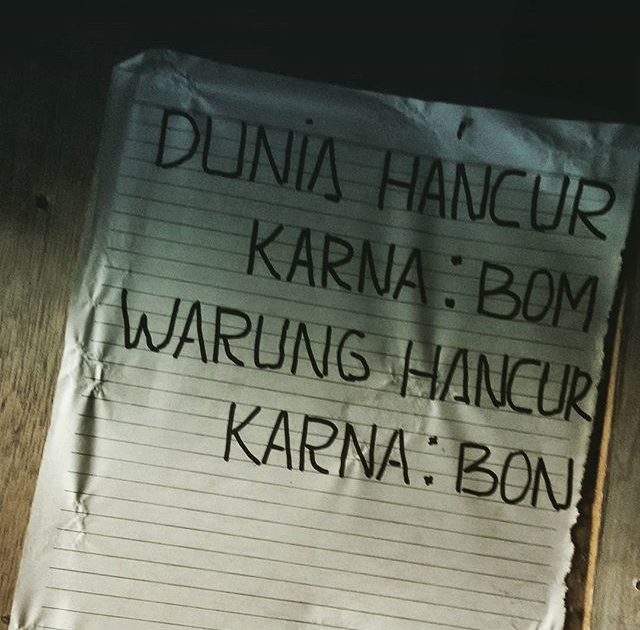 DUNIA HANCUR
KARNA : BOM
WARUNG HANCUR
KARNA : BON